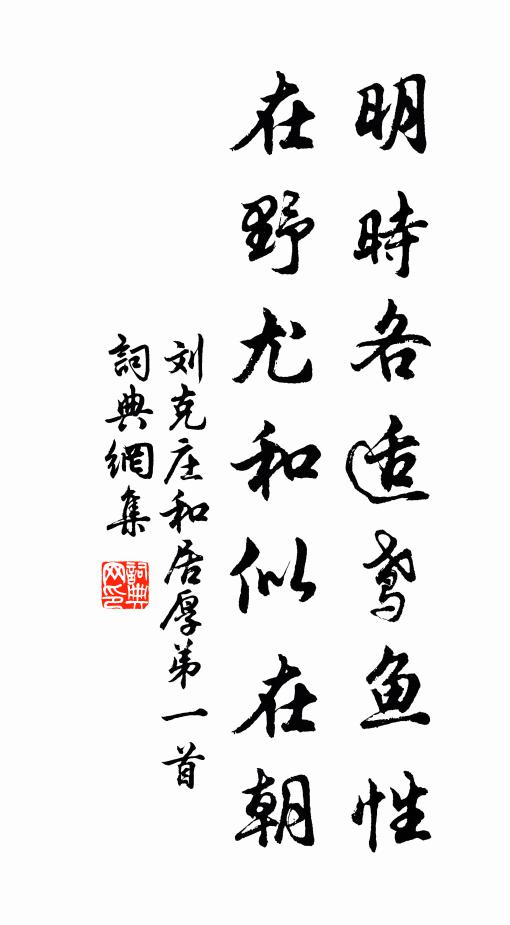 明時各适鸢鱼性
在野尤和似在朝
刘克庄和居厚弟一首
詞典網集
詞典网印